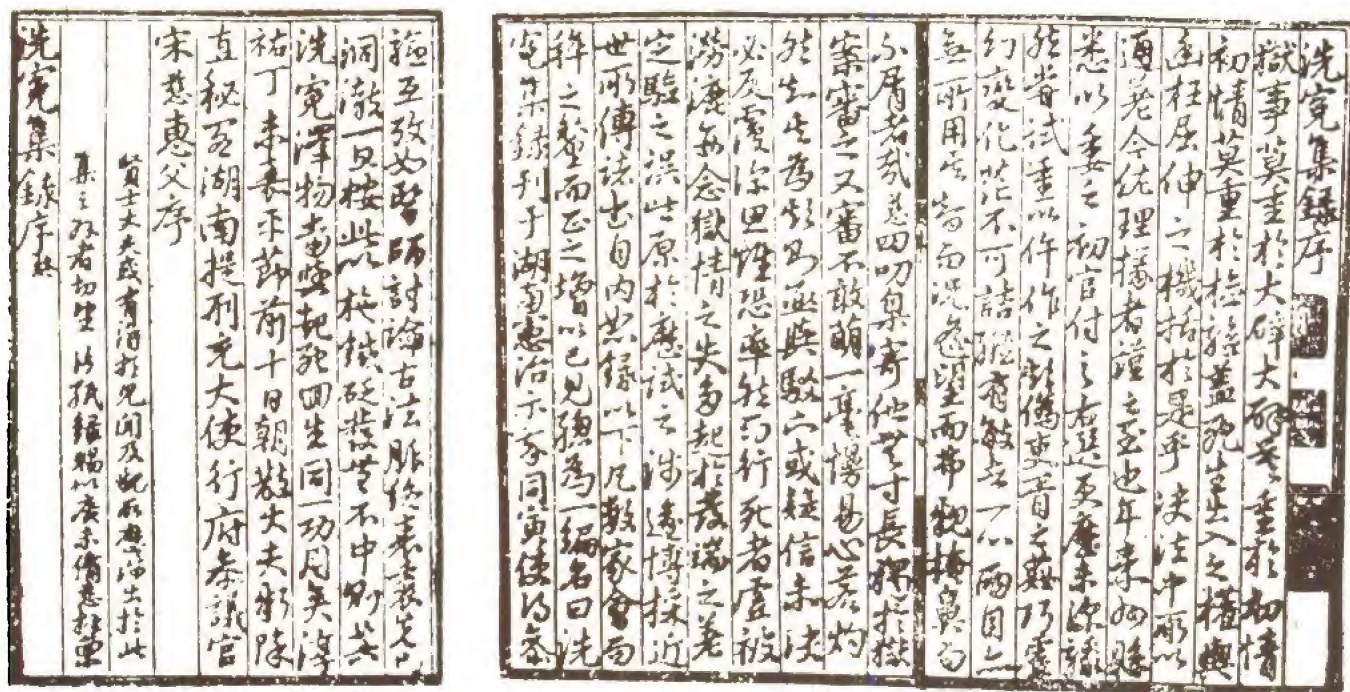 洗冤集錄序
獄事莫重於大辟大辟莫重於初情
初情莫重於檢驗蓋死生出入之權輿
幽枉屈伸之機括於是乎決法中所以
通差令佐理掾者謹之至也年來州縣
悉以委之初官付之右選更歷未深驟
然嘗試重以仵作之欺偽吏胥之姦巧虛
幻變化茫不可詰縱有敏者一心兩目亦
無所用其智而況遙望而弗親掩鼻而
不屑者哉慈四叨臬寄他無寸長獨於獄
案審之又審不敢萌一毫慢易心若灼
然知其為欺則亟與駁下或疑信未決
必反覆深思惟恐率然而行死者虛被
澇漉每念獄情之失多起於發端之差
定驗之誤皆原於歷試之淺遂博採近
世所傳諸書自內恕錄以下凡數家會而
粹之釐而正之增以己見總為一編名曰洗
冤集錄刊于湖南憲治示我同寅使得參
驗互攷如醫師討論古法脈絡表裏先已
洞澈一旦按此以施鍼砭發無不中則其
洗冤澤物當與起死回生同一功用矣淳
祐丁未嘉平節前十日朝散大夫新除
直秘閣湖南提刑充大使行府參議官
宋慈惠父序
賢士大夫或有得於見聞及親所歷涉出於此
集之外者切望片紙錄賜以廣未備慈拜稟
洗冤集錄序